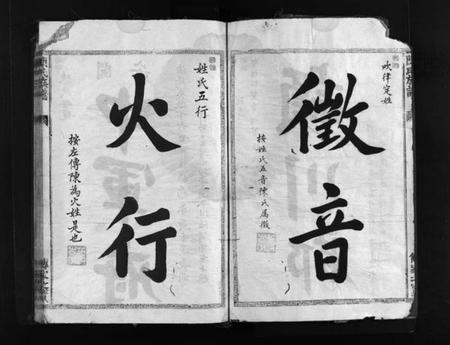 吹律定姓
徵音
按姓氏五音陳氏屬徵
姓氏五行
火行
按左傳陳為火姓是也